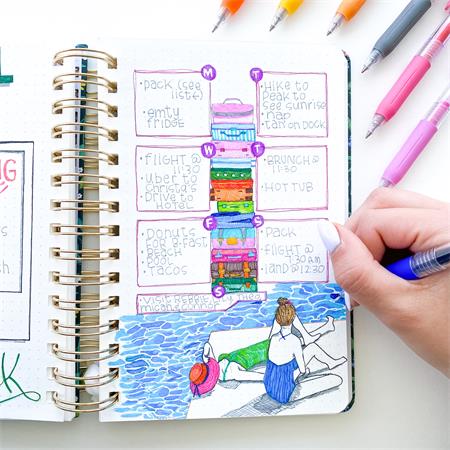 NG
s
sh
k
M
• pack (see
list
• emty
fridge
T
• Hike to
peak to
see sunrise
• nap
• tan on Dock
W
• flight @
11:30
• Uber to
Christa's
• Drive to
HOTEL
T
• BRUNCH @
11:30
• HOT TUB
F
• Donuts
for B-fast
• Beach
• Pool
• Tacos
S
• Pack
• flight @
7:30 am
land @ 12:30
S
VISIT